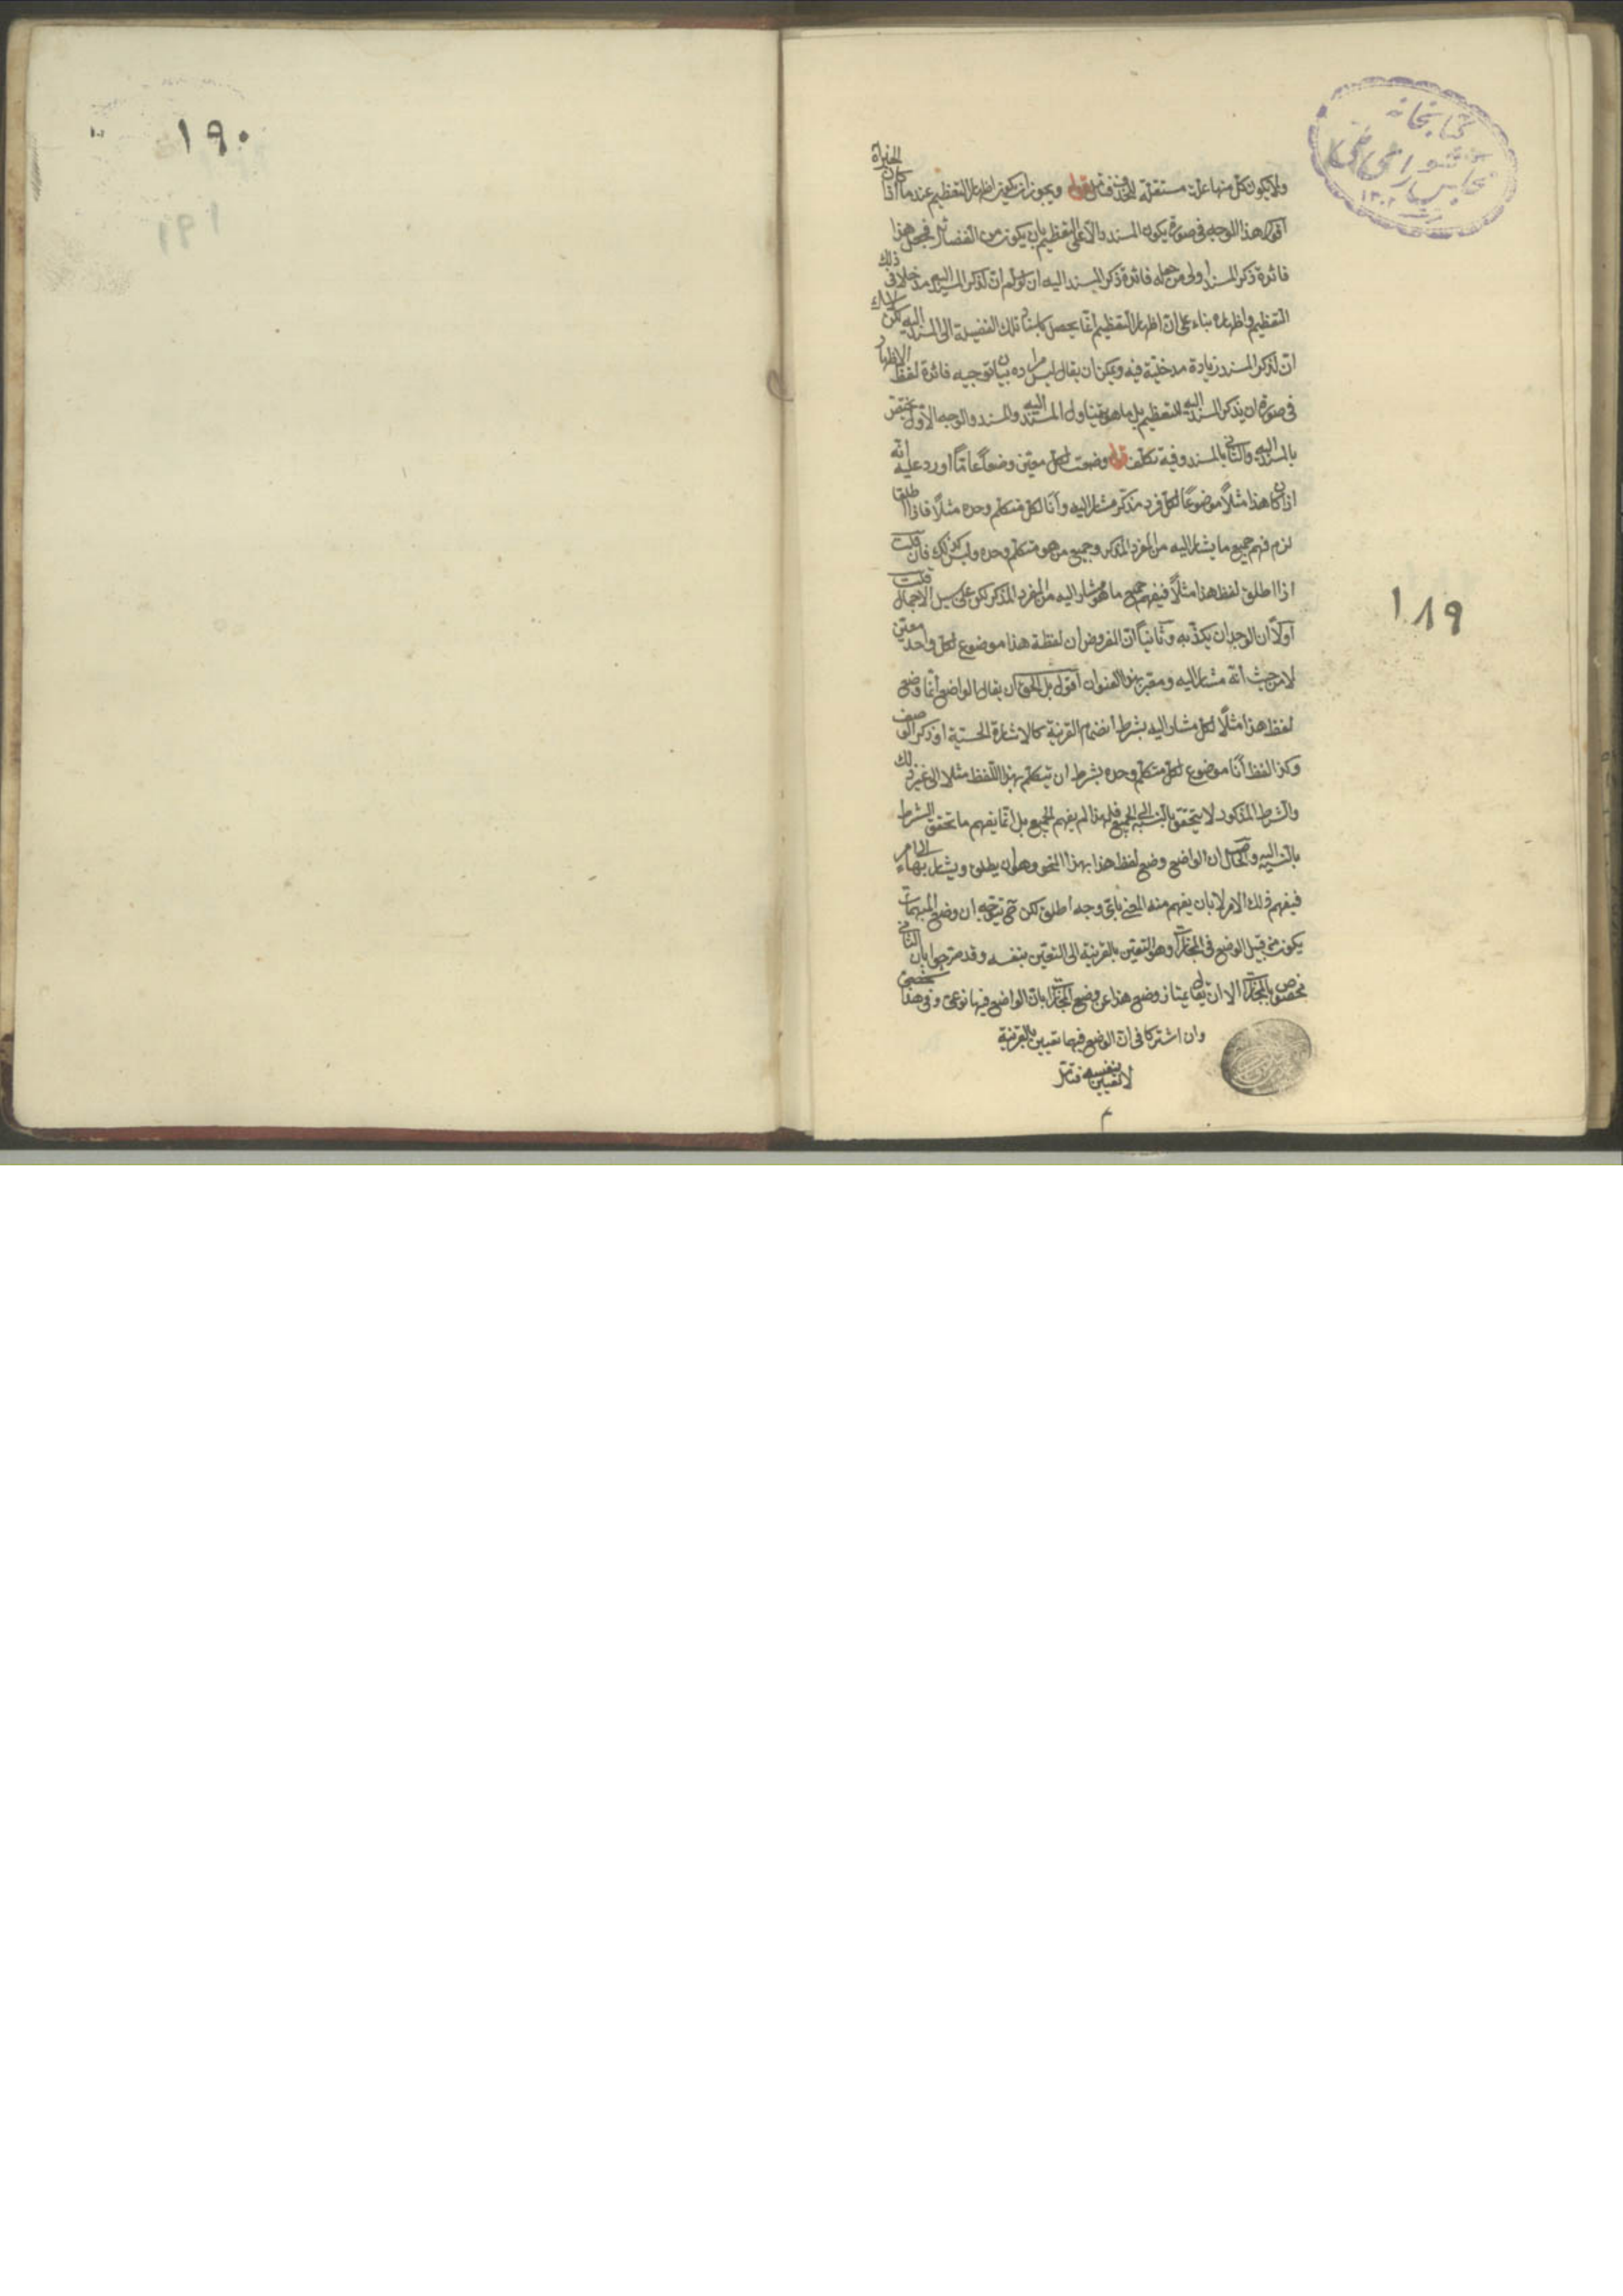 ولا يكون كل منها علة مستقلة للحذف فتأمل قوله ويجوز ان يكون اظهار التعظيم عندما اذا كان
اقول هذا التوجيه في صورة يكون المسند دالا على التعظيم بان يكون من الفضائل فجعل هذا
فائدة ذكر المسند اولى من جعله فائدة ذكر المسند اليه ان سلم ان لذكر المسند اليه مدخلا في ذلك
التعظيم واظهاره بناء على ان اظهار التعظيم انما يحصل باسناد تلك الفضيلة الى المسند اليه لكن
ان لذكر المسند زيادة مدخلية فيه ويمكن ان يقال ليس مراده بيان توجيه فائدة لفظ الاظهار
في صورة ان يذكر المسند اليه للتعظيم بل ما هو يتناول المسند اليه والمسند والوجه الاول يختص
بالمسند اليه والثاني بالمسند وفيه تكلف قوله وضعت لكل معين وضعا عاما اورد عليه انه
اذا كان هذا مثلا موضوعا لكل فرد مذكر مشار اليه وانا لكل متكلم وحده مثلا فاذا اطلقا
لزم فهم جميع ما يشار اليه من المفرد المذكر وجميع من هو متكلم وحده وليس كذلك فان قلت
اذا اطلق لفظ هذا مثلا فيفهم جميع ما هو مشار اليه من المفرد المذكر لكن على سبيل الاجمال قلت
اولا ان الوجدان يكذبه وثانيا ان المفروض ان لفظة هذا موضوع لكل واحد معين
لا من حيث انه مشار اليه ومعبر بهذا العنوان اقول بل الحق ان يقال الواضع انما وضع
لفظ هذا مثلا لكل مشار اليه بشرط انضمام القرينة كالاشارة الحسية او ذكر الوصف
وكذا لفظ انا موضوع لكل متكلم وحده بشرط ان يتكلم بهذا اللفظ مثلا الى غير ذلك
والشرط المذكور لا يتحقق بالنسبة الى الجميع فلهذا لم يفهم الجميع بل انما يفهم ما تحقق الشرط
بالنسبة اليه والحاصل ان الواضع وضع لفظ هذا بهذا النحو وهو ان يطلق ويشار بها الى امر
فيفهم ذلك الامر لا بان يفهم منه المعنى باى وجه اطلق لكن ح يتوجه ان وضع المبهمات
يكون من قبيل الوضع في المجازات وهو التعيين بالقرينة الى التعيين بنفسه وقد صرحوا بان الثاني
مخصوص بالمجازات الا ان يقال يمتاز وضع هذا عن وضع المجازات بان الواضع فيها نوعي وفي هذا شخصي
وان اشتركا في ان الوضع فيهما تعيين بالقرينة
لا تعيين بنفسه فتأمل
م
كتابخانه
مجلس شوراى ملى
١٣٠٢
١٨٩
١٩٠